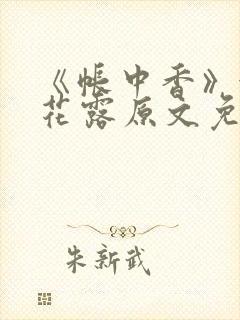 《帐中香》
花露原文免
朱新武